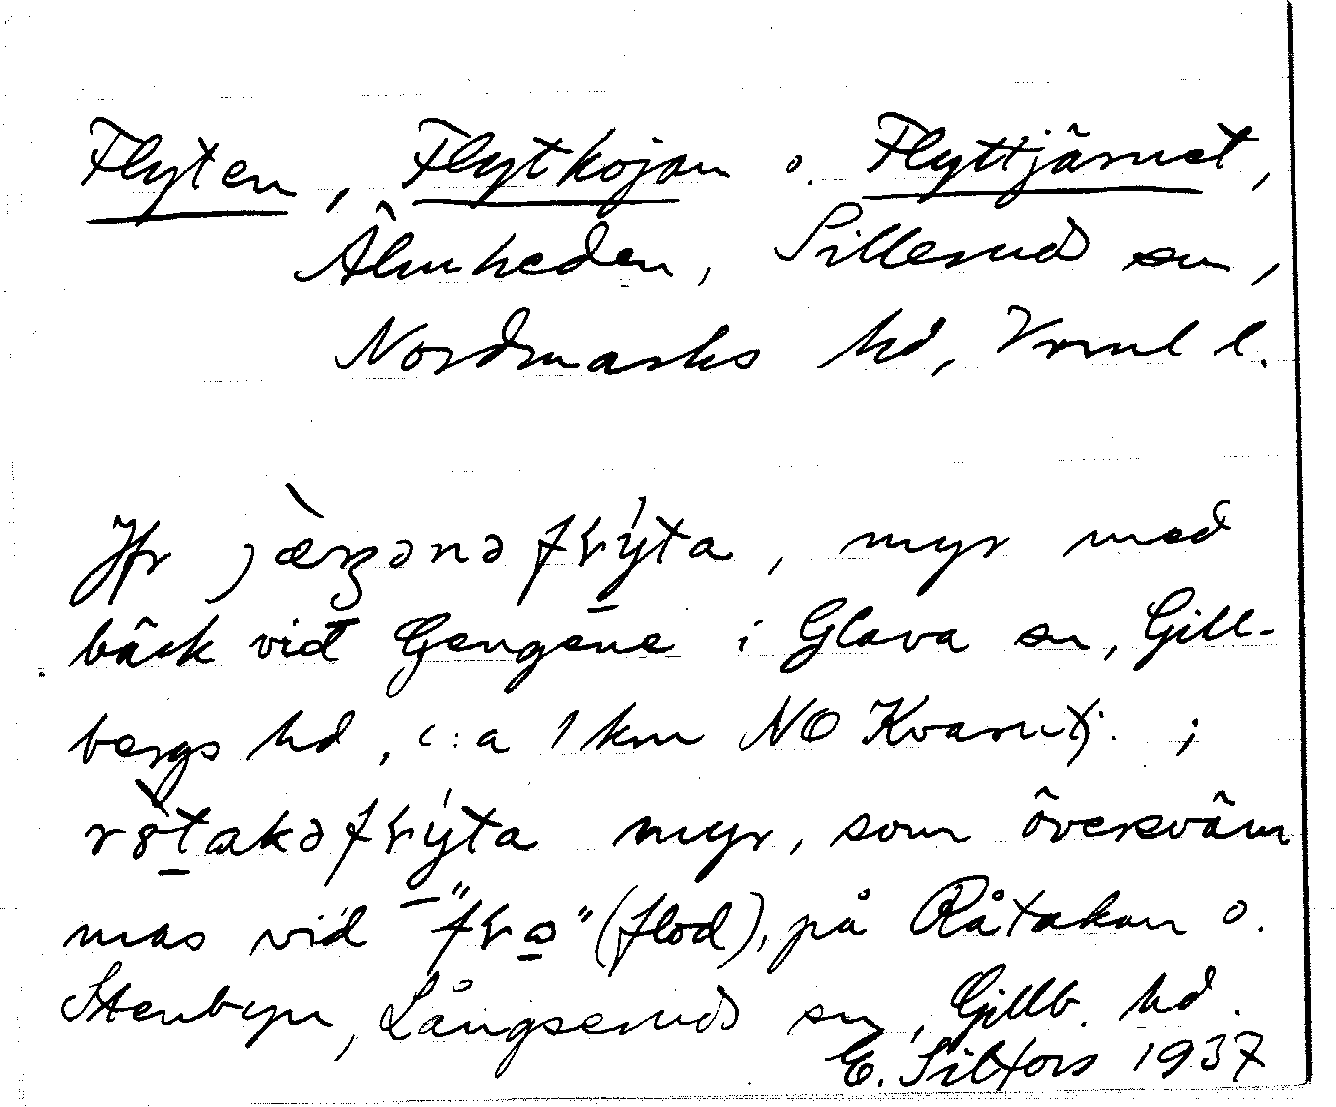 Flyten, Flytkojan o. Flyttjärnet,
Älmheden, Sillerud sn,
Nordmarks hd, Vrml l.
Jfr flýta, myr med
bäck vid Gengene i Glava sn, Gill-
bergs hd, c:a 1 km NO Kvarntj. ;
myr, som översväm
mas vid (flod), på Råtakan o.
Stenbyn, Långserud sn, Gillb. hd.
E. Silfors 1937